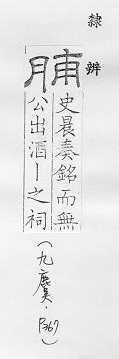 隸辨
脯
史晨奏銘而無
公出酒丨之祠
(九麌·P367)